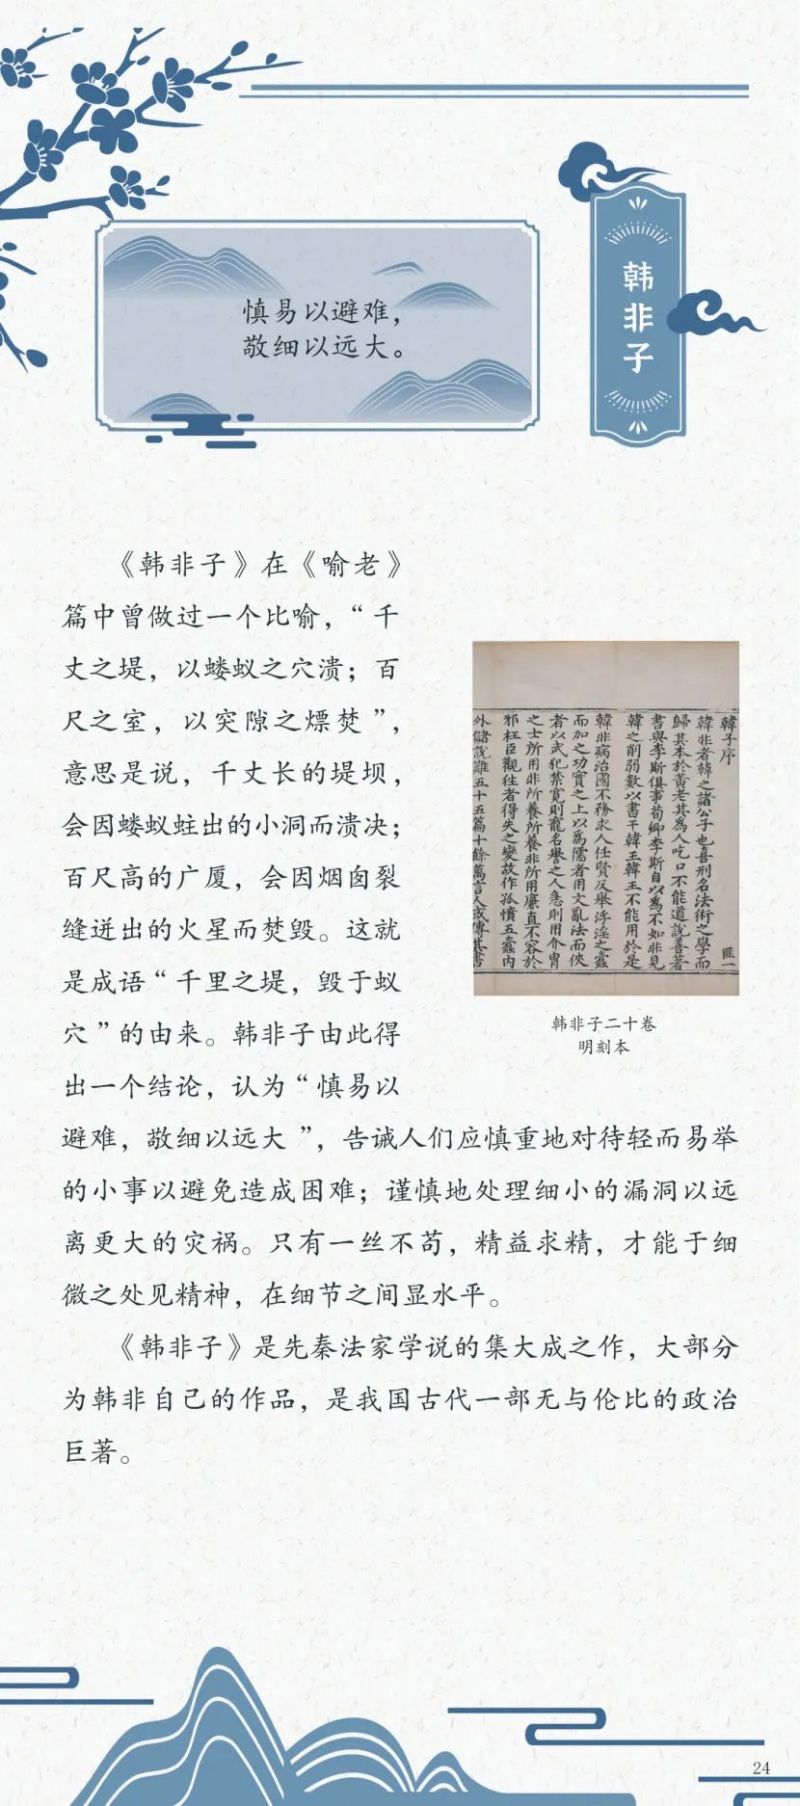 韩非子
慎易以避难，
敬细以远大。
《韩非子》在《喻老》
篇中曾做过一个比喻，“千
丈之堤，以蝼蚁之穴溃；百
尺之室，以突隙之熛焚”，
意思是说，千丈长的堤坝，
会因蝼蚁蛀出的小洞而溃决；
百尺高的广厦，会因烟囱裂
缝迸出的火星而焚毁。这就
是成语“千里之堤，毁于蚁
穴”的由来。韩非子由此得
出一个结论，认为“慎易以
避难，敬细以远大 ”，告诫人们应慎重地对待轻而易举
的小事以避免造成困难；谨慎地处理细小的漏洞以远
离更大的灾祸。只有一丝不苟，精益求精，才能于细
微之处见精神，在细节之间显水平。
《韩非子》是先秦法家学说的集大成之作，大部分
为韩非自己的作品，是我国古代一部无与伦比的政治
巨著。
韓子序
韓非者韓之諸公子也喜刑名法術之學而
歸其本於黃老其為人吃口不能道說善著
書與李斯俱事荀卿李斯自以為不如非見
韓之削弱數以書干韓王韓王不能用於是
韓非病治國不務求人任賢反舉浮淫之蠹
而加之功實之上以為儒者用文亂法而俠
者以武犯禁寬則寵名譽之人急則用介胄
之士所用非所養所養非所用廉直不容於
邪枉臣觀往者得失之變故作孤憤五蠹內
外儲說難五十五篇十餘萬言人或傳其書
匪一
韩非子二十卷
明刻本
24